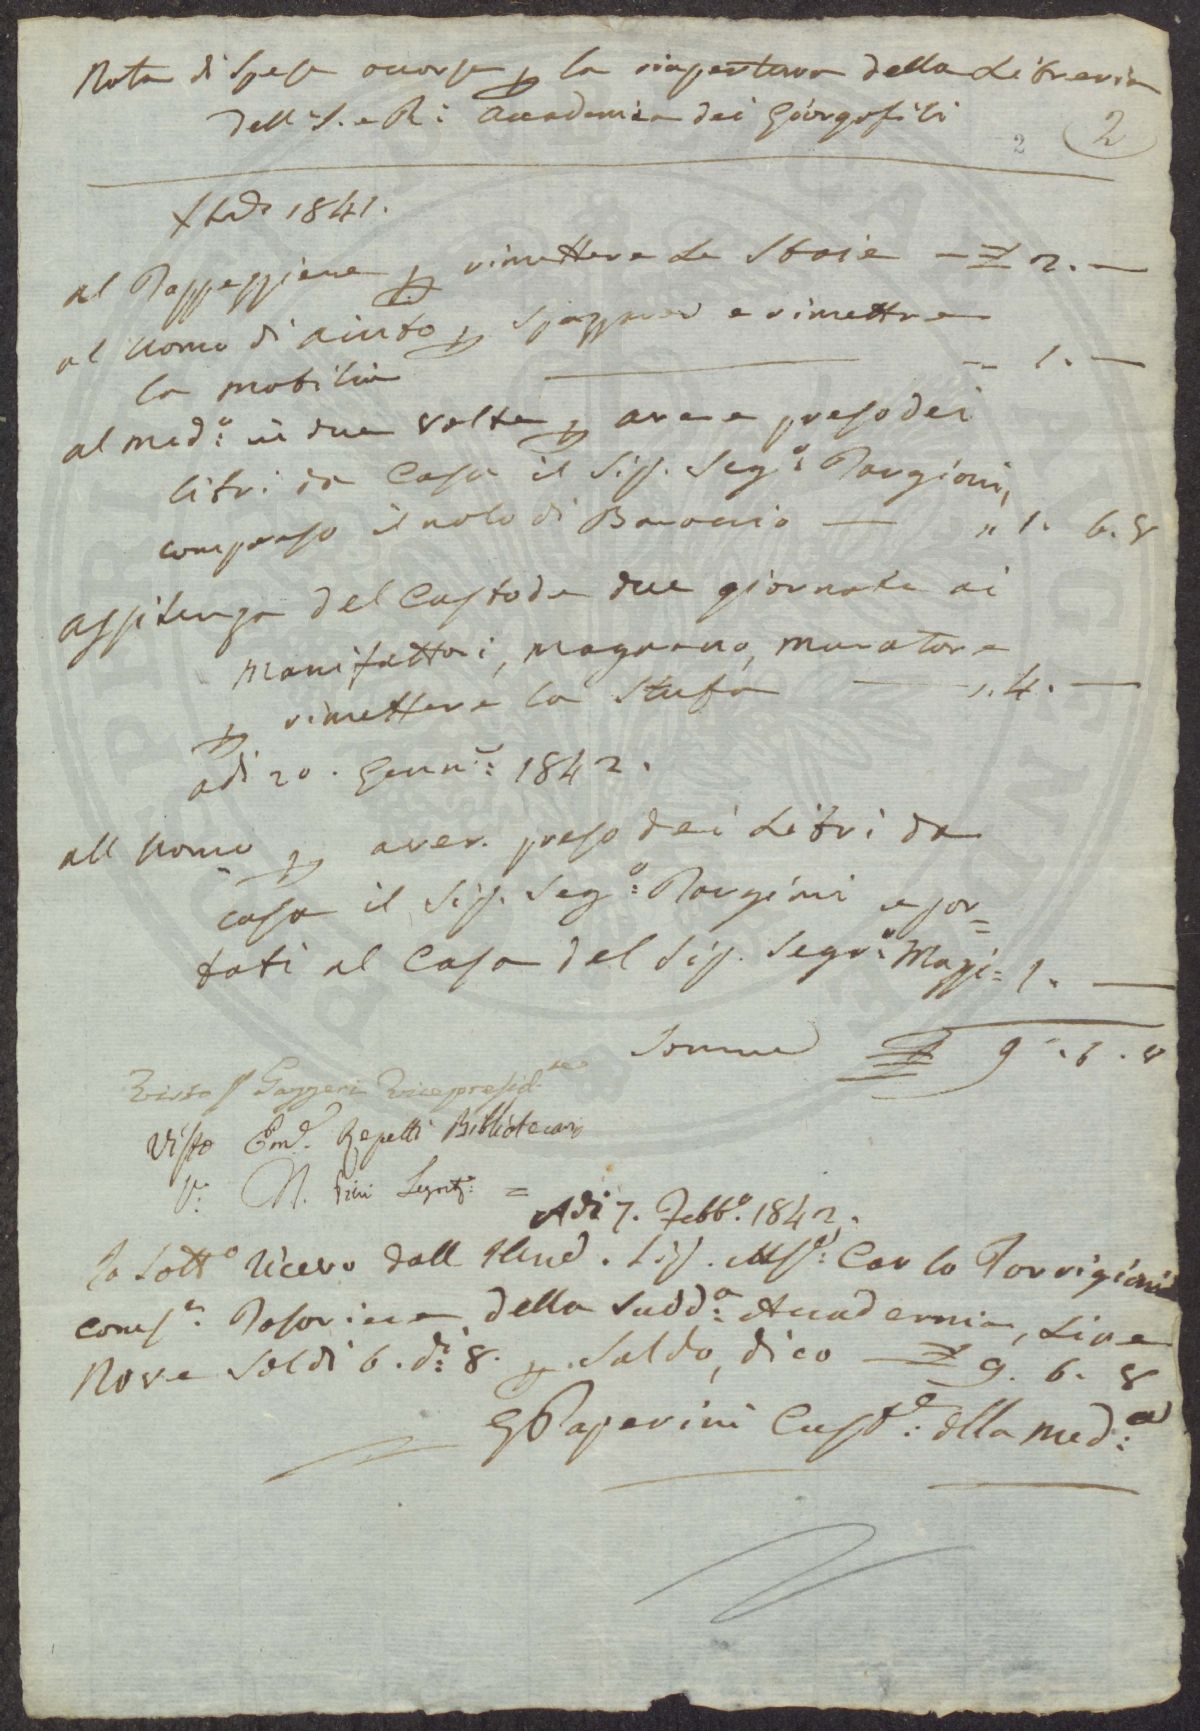 Nota di Spese occorse p la riapertura della Libreria
dell' I. e R: Accademia dei Georgofili
2 2
Xbre 1841.
al Tappezziere p rimettere Le Stoie — £ 2. —
al Uomo di aiuto p spazzare e rimettere
la mobilia — „ 1. —
al med:o in due volte p avere preso dei
libri da Casa il Sig. Seg:o Targioni,
compreso il nolo di Baroccio — „ 1. 6. 8
assitenza del Custode due giornate ai
Manifattori, magnano, muratore
p rimettere la Stufa — „ 4. —
adi 20. Genn:o 1842.
all Uomo p aver. preso dei Libri da
casa il Sig. Seg:o Targioni e por=
tati al Casa del Sig. Segr:o = 1. —
Somma £ 9. 6. 8
Visto Gazzeri Vicepresid:te
Visto Em. Repetti Bibliotecario
V:
Adi 7. Febb:o 1842.
Io Sott:o ricevo dall Illmo. Sig. Carlo Torrigiani
della Sudd:a Accademia, Lire
Nove Soldi 6. d: 8. p. Saldo, dico — £ 9. 6. 8
G Paperini Cust:e della Med:a